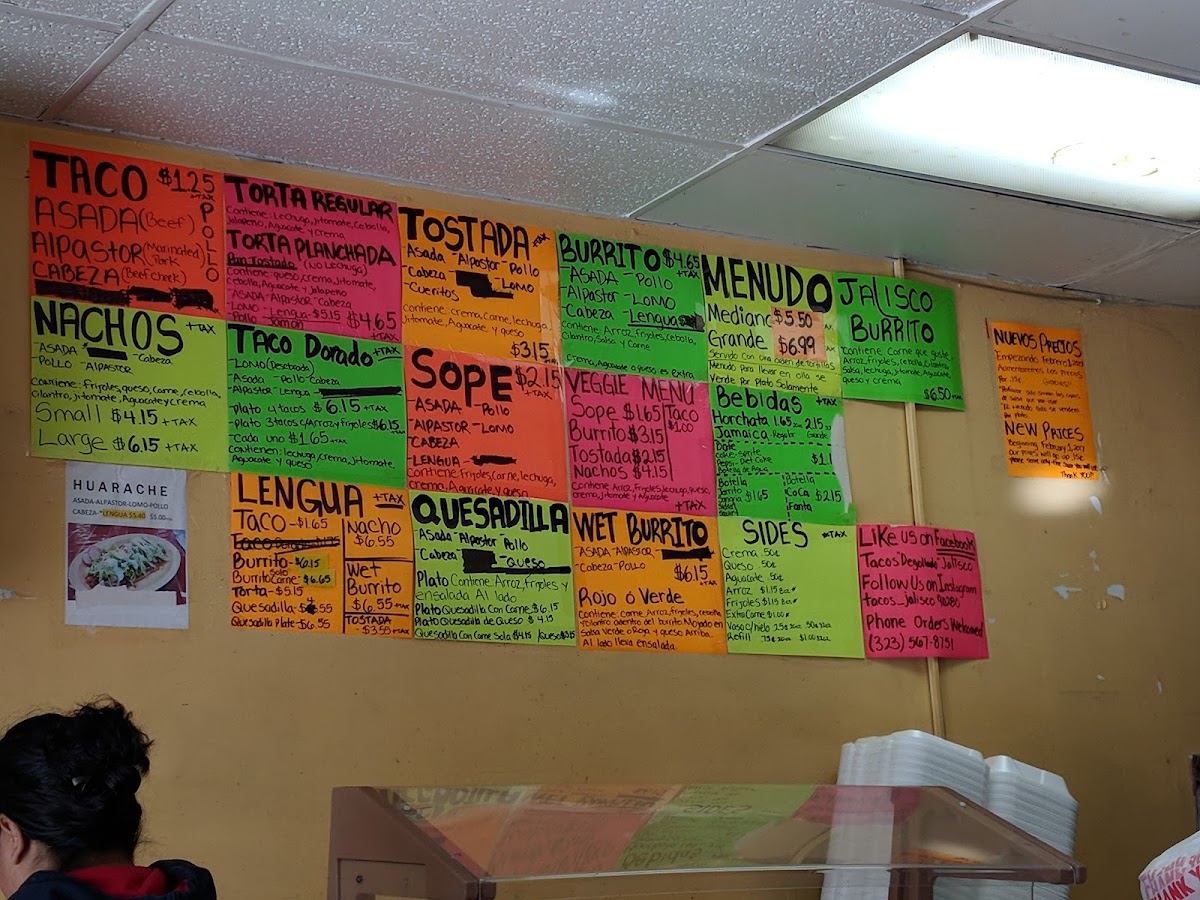 TACO $1.25 +TAX
ASADA (Beef)
AlPASTOR (Marinated Pork)
CABEZA (Beef cheek)
POLLO
TORTA REGULAR
Contiene: Lechuga, jitomate, cebolla,
Jalapeño, Aguacate y crema
TORTA PLANCHADA
Pan Tostado (No Lechuga)
Contiene: queso, crema, jitomate,
cebolla, Aguacate y Jalapeño
-ASADA-AlPASTOR-Cabeza
-LOMO -Lengua-$5.15 $4.65
-Pollo -Jamon +TAX
TOSTADA +TAX
-Asada -Alpastor -Pollo
-Cabeza -LOMO
-Cueritos
Contiene: crema, Carne, lechuga,
Jitomate, Aguacate y queso
$3.15
BURRITO $4.65 +TAX
-ASADA -Pollo
-Alpastor -LOMO
-Cabeza -Lengua
Contiene, Arroz, frijoles, cebolla,
Cilantro, Salsa y Carne
crema, Aguacate o queso es Extra
MENUDO
Mediano $5.50
Grande $6.99
Servido con una orden de tortillas
Menudo Para llevar en olla se
Verde Por Plato Solamente
JALISCO
BURRITO
Contiene Carne que guste,
Arroz, frijoles, cebolla Cilantro
Salsa, lechuga, jitomate, Aguacate,
queso y crema
$6.50 +TAX
NUEVOS PRECIOS
Empezando Febrero 1, 2017
Aumentaremos Los Precios
NEW PRICES
Beginning February 1, 2017
Thank You!!
NACHOS +TAX
-ASADA -Cabeza
-POLLO -AlPASTOR
Contiene: Frijoles, queso, Carne, cebolla,
Cilantro, Jitomate, Aguacate y crema
Small $4.15 +TAX
Large $6.15 +TAX
TACO Dorado +TAX
-LOMO (Desebrada)
-Asada -Pollo-Cabeza
-Alpastor -Lengua
-Plato 4 tacos $6.15 +TAX
-Plato 3 tacos c/Arroz y frijoles $6.15 +TAX
-Cada uno $1.65 +TAX
Contienen: lechuga, crema, jitomate,
Aguacate y queso
SOPE $2.15 +TAX
-ASADA -Pollo
-AlPASTOR -LOMO
-CABEZA
-LENGUA
Contiene: Frijoles, Carne, lechuga,
crema, Aguacate y queso
VEGGIE MENU
Sope $1.65
Burrito $3.15
Tostada $2.15
Nachos $4.15
Taco
$1.00
Contiene, Arroz, Frijoles, lechuga, queso,
crema, Jitomate y Aguacate
+TAX
Bebidas +TAX
Horchata 1.65 2.15
Jamaica Regular Grande
Bote
coke-sprite
Pepsi-Diet Coke
Botella de Agua
$1.
Botella
Jarrito
Sangria
Sidral
Squirt
$1.65
Botella
Coca
Fanta
$2.15
HUARACHE
ASADA-ALPASTOR-LOMO-POLLO
CABEZA-*LENGUA $5.40 $5.00+TAX
LENGUA +TAX
Taco -$1.65
Burrito-$6.15
Solo
Burrito Carne-$6.65
Torta-$5.15
Quesadilla-$4.55
Quesadilla Plate-$6.55
Nacho
$6.55
Wet
Burrito
$6.55 +TAX
TOSTADA
-$3.55 +TAX
QUESADILLA
-Asada -Alpastor Pollo
-Cabeza -Queso
Plato Contiene Arroz, frijoles y
ensalada Al lado
Plato Quesadilla Con Carne $6.15
Plato Quesadilla de Queso $4.15
Quesadilla Con Carne Sola $4.15 /Queso $3.15
WET BURRITO
-ASADA -AlPASTOR
-Cabeza-POLLO
$6.15 +TAX
Rojo ó Verde
Contiene: Carne Arroz, frijoles, cebolla
y cilantro adentro del burrito Mojado en
Salsa Verde o Roja y queso Arriba.
Al lado lleva ensalada.
SIDES +TAX
Crema .50¢
Queso .50¢
Aguacate .50¢
Arroz $1.15 8oz
Frijoles $1.15 8oz
Extra Carne $1.00
Vaso c/hielo .25¢ 20oz .50¢ 32oz
Refill .75¢ 20oz $1.00 32oz
Like us on Facebook
Tacos Degollado Jalisco
Follow Us on Instagram
tacos_jalisco 90280
Phone Orders Welcomed
(323) 567-8751
THANK Y